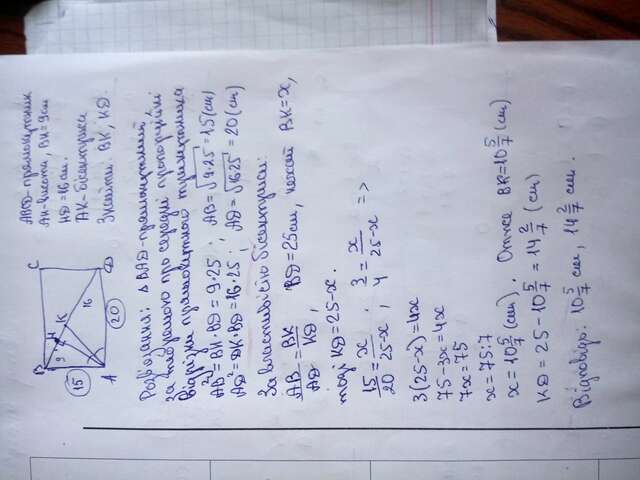 ABCD-прямокутник
AH-висота, BH=9см
HD=16см.
AK-бісектриса
Знайти: BK, KD.
B
C
H
9
K
15
16
A
20
D
Розв'язання: △BAD-прямокутний,
за теоремою про середні пропорційні
відрізки прямокутного трикутника
AB²=BH·BD=9·25; AB=√9·25=15(см)
AD²=DK·BD=16·25; AD=√16·25=20(см)
За властивістю бісектриси:
AB/AD=BK/KD, BD=25см, нехай BK=x,
тоді KD=25-x.
15/20=x/25-x; 3/4=x/25-x =>
3(25-x)=4x
75-3x=4x
7x=75
x=75:7
x=10 5/7 (см). Отже BK=10 5/7 (см)
KD=25-10 5/7=14 2/7 (см)
Відповідь: 10 5/7 см, 14 2/7 см.